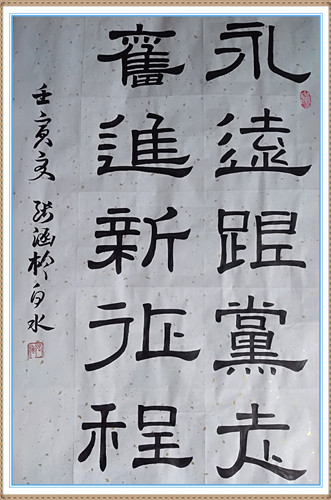 永遠跟黨走
奮進新征程
壬寅文 張涵於白水